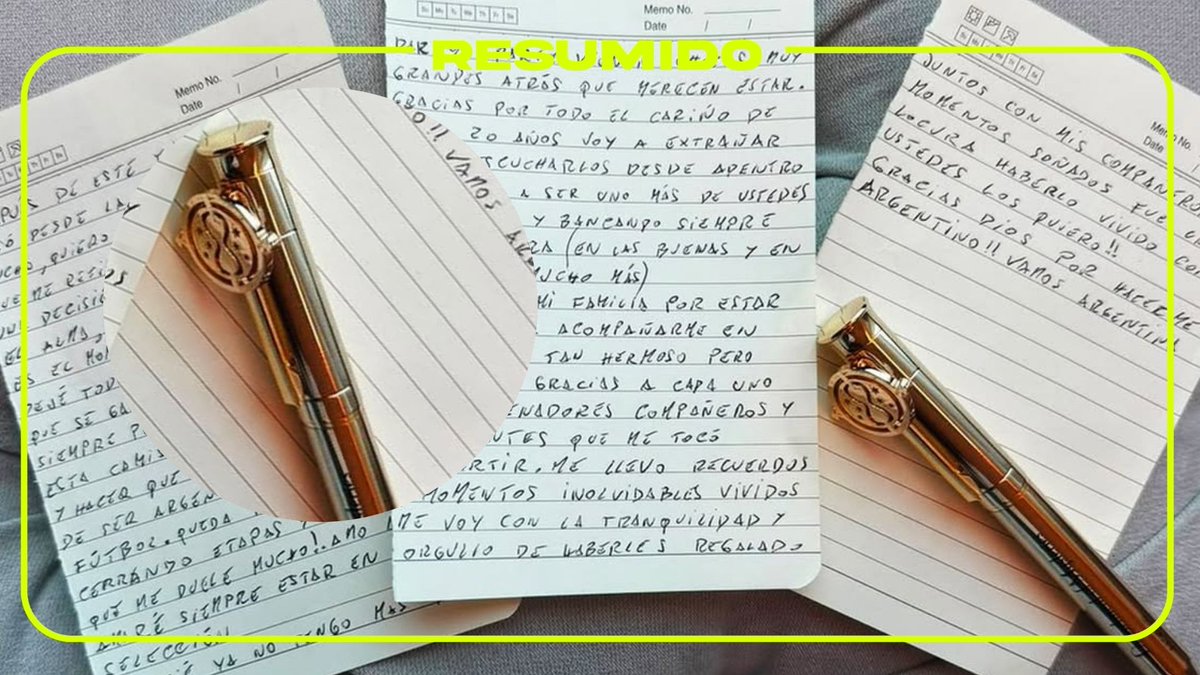 RESUMIDO
Memo No.
Date
PUÉS DE ESTÉ
DESDE LA
QUIERO
DECISIÓN
EL ALMA,
ES EL
DEJÉ TODO
QUE SE
SIEMPRE
ESTA CAMIS
Y HACER QUE
DE SER ARGEN
FÚTBOL. QUEDA
CERRANDO ETAPAS Y
QUE ME DUELE MUCHO!. AMO
AMARÉ SIEMPRE ESTAR EN
SELECCIÓN
YA NO TENGO MAS
VAMOS
Su Mo Tu We Th Fr Sa
Memo No.
Date / /
DAR Y MUY
GRANDES ATRÁS QUE MERECEN ESTAR.
GRACIAS POR TODO EL CARIÑO DE
20 AÑOS VOY A EXTRAÑAR
SCUCHARLOS DESDE ADENTRO
A SER UNO MÁS DE USTEDES
Y BANCANDO SIEMPRE
(EN LAS BUENAS Y EN
MUCHO MÁS)
MI FAMILIA POR ESTAR
ACOMPAÑARME EN
TAN HERMOSO PERO
GRACIAS A CADA UNO
ENADORES COMPAÑEROS Y
NTES QUE ME TOCÓ
RTIR. ME LLEVO RECUERDOS
MOMENTOS INOLVIDABLES VIVIDOS
ME VOY CON LA TRANQUILIDAD Y
ORGULLO DE HABERLES REGALADO
Memo No.
Date
JUNTOS CON MIS COMPAÑERO
MOMENTOS SOÑADOS FUE U
LOCURA HABERLO VIVIDO CO
USTEDES LOS QUIERO!!
GRACIAS DIOS POR HACERME
ARGENTINO!! VAMOS ARGENTINA